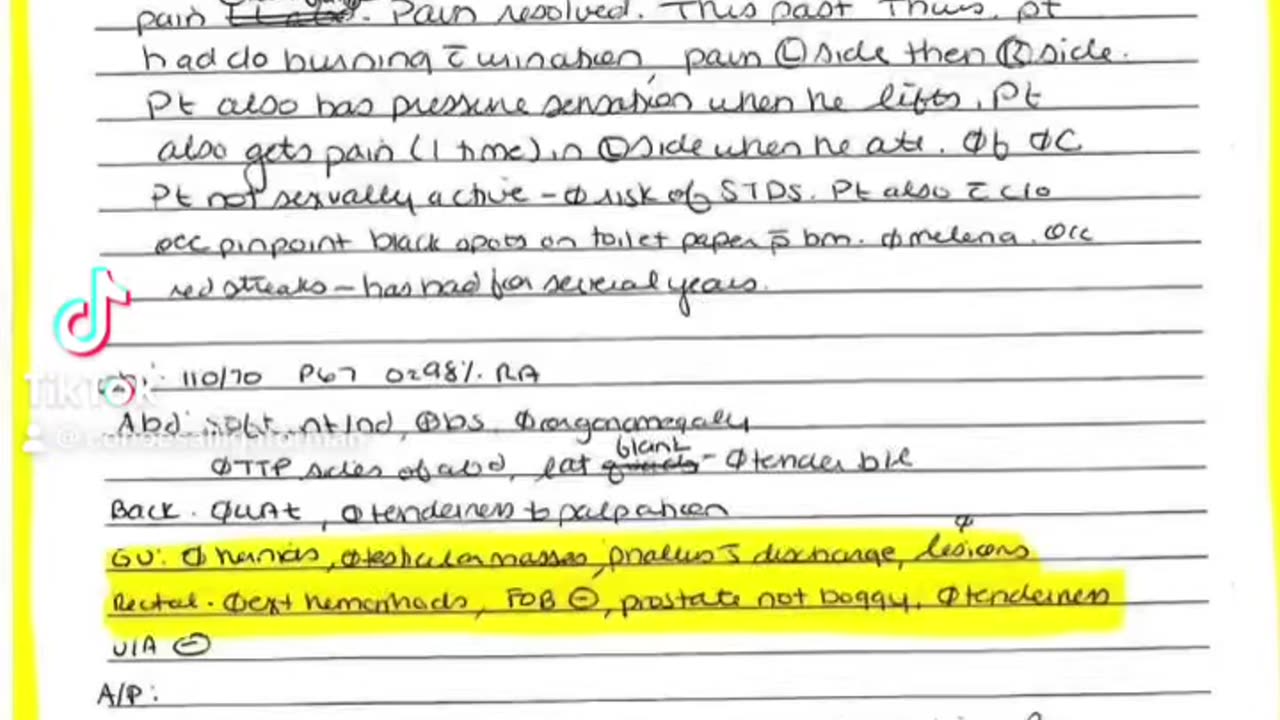 pain. Pain resolved. This past Thurs. pt
had c/o burning c̄ urination, pain Ⓛ side then Ⓡ side.
Pt also has pressure sensation when he lifts. Pt
also gets pain (1 time) in Ⓛ side when he ate. ∅ ∅C
Pt not sexually active - ∅ risk of STDS. Pt also c̄ c/o
occ pinpoint black spots on toilet paper p̄ bm. ∅melena. Occ
red streaks - has had for several years.
110/70 P67 O298% RA
Abd: soft nt/nd, ⊕bs. ∅organomegally
∅TTP sides of abd, lat blank - ∅tender
Back. ∅, ∅tenderness to palpation
GU: ∅ hernias, ∅testicular masses, phallus s̄ discharge, ∅ lesions
Rectal. ∅ext hemorrhoids, FOB ⊖, prostate not boggy. ∅tenderness
U/A ⊖
A/P:
TikTok